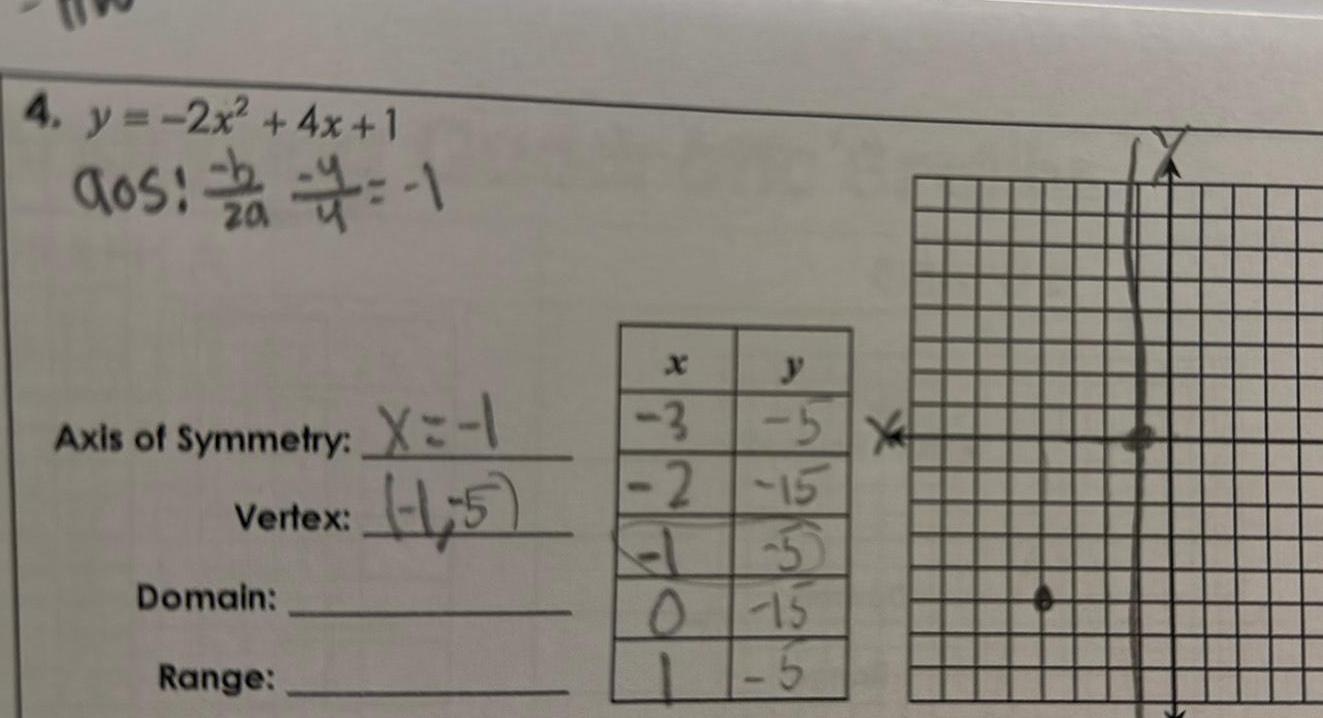 4. y = -2x² + 4x + 1
aos: -b/2a -4/4 = -1
y
x y
-3 -5
Axis of Symmetry: x = -1
x
-2 -15
Vertex: (-1, -5)
-1 -5
Domain:
0 -15
Range:
1 -5